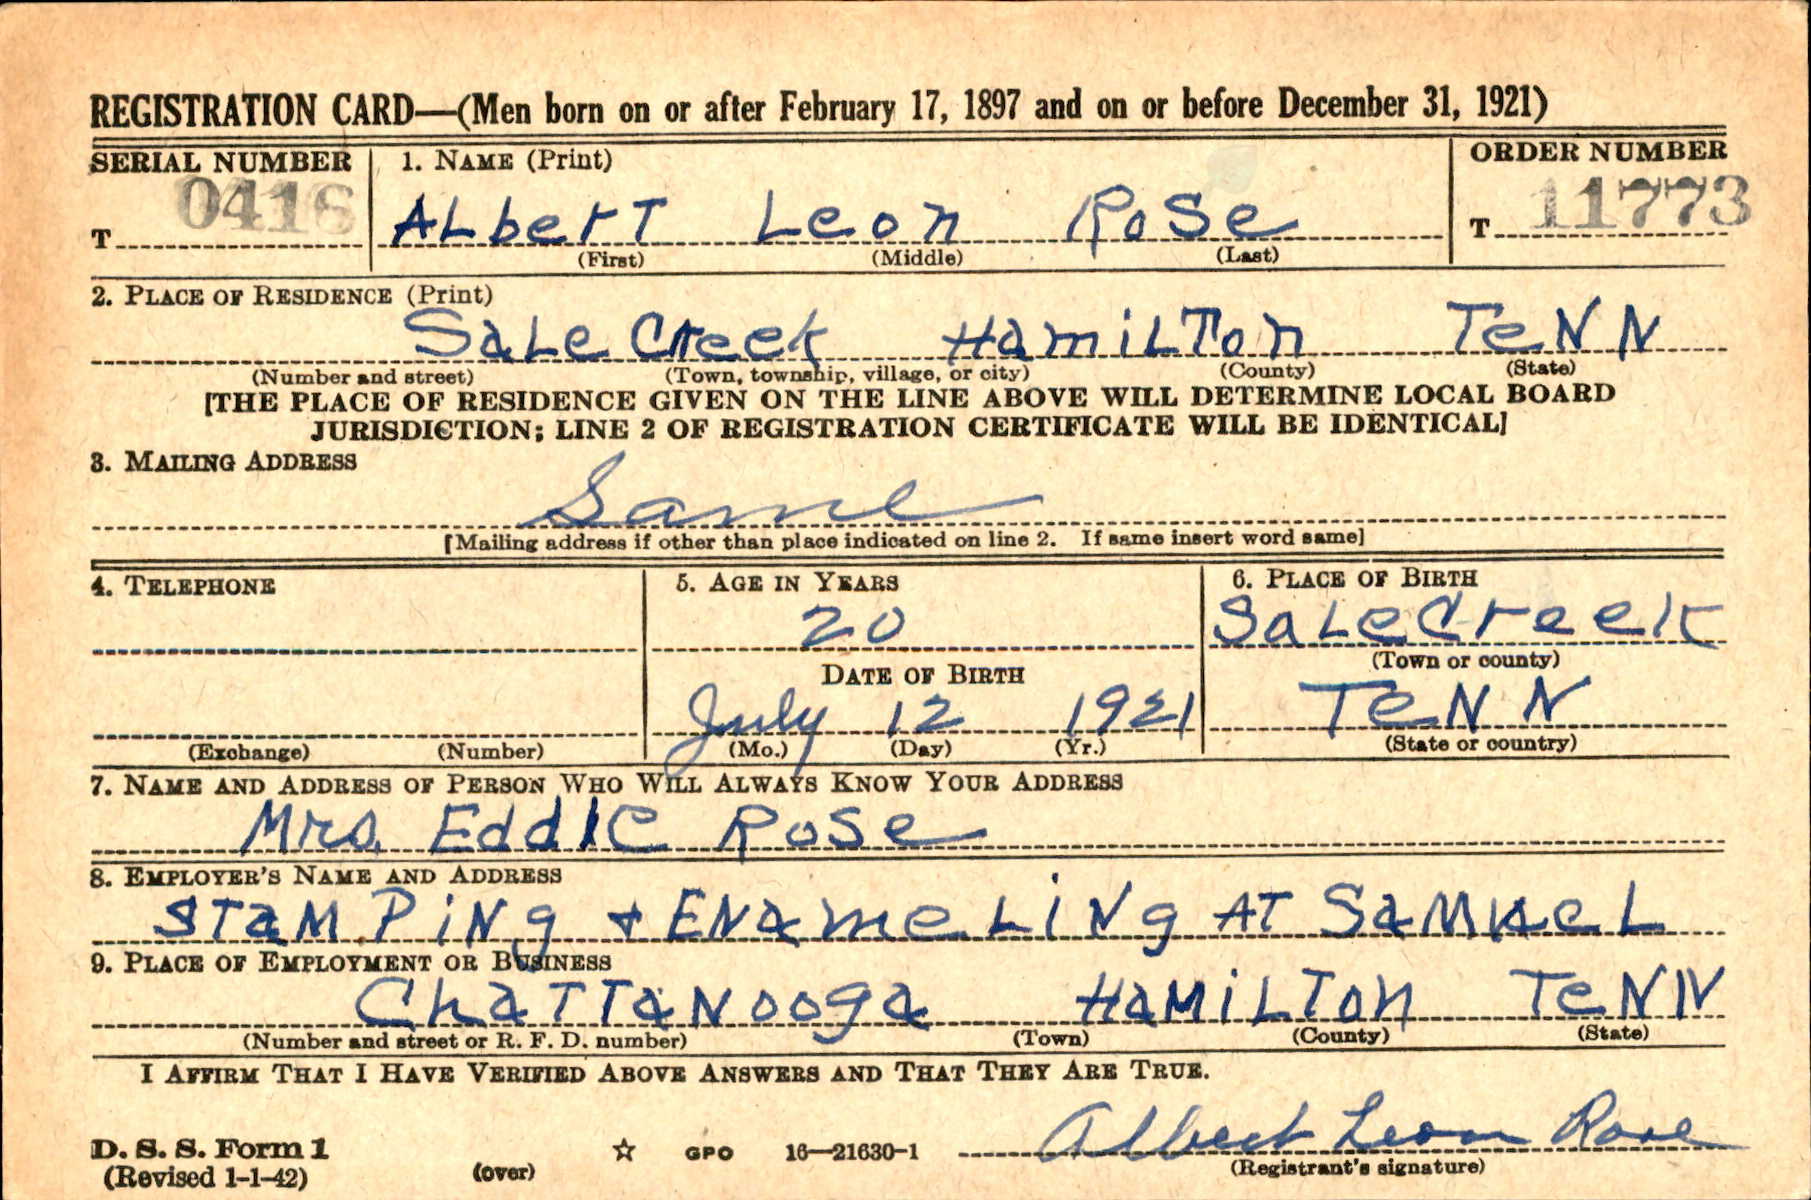 REGISTRATION CARD—(Men born on or after February 17, 1897 and on or before December 31, 1921)
SERIAL NUMBER 1. NAME (Print) ORDER NUMBER
T 0416 ALbert Leon Rose T 11773
(First) (Middle) (Last)
2. PLACE OF RESIDENCE (Print)
Sale Creek Hamilton Tenn
(Number and street) (Town, township, village, or city) (County) (State)
[THE PLACE OF RESIDENCE GIVEN ON THE LINE ABOVE WILL DETERMINE LOCAL BOARD
JURISDICTION; LINE 2 OF REGISTRATION CERTIFICATE WILL BE IDENTICAL]
3. MAILING ADDRESS
Same
[Mailing address if other than place indicated on line 2. If same insert word same]
4. TELEPHONE 5. AGE IN YEARS 6. PLACE OF BIRTH
20 Sale Creek
DATE OF BIRTH (Town or county)
July 12 1921 Tenn
(Exchange) (Number) (Mo.) (Day) (Yr.) (State or country)
7. NAME AND ADDRESS OF PERSON WHO WILL ALWAYS KNOW YOUR ADDRESS
Mrs. Eddie Rose
8. EMPLOYER'S NAME AND ADDRESS
Stamping + Enameling AT Samuel
9. PLACE OF EMPLOYMENT OR BUSINESS
Chattanooga Hamilton Tenn
(Number and street or R. F. D. number) (Town) (County) (State)
I AFFIRM THAT I HAVE VERIFIED ABOVE ANSWERS AND THAT THEY ARE TRUE.
D. S. S. Form 1 ☆ GPO 16—21630-1 Albert Leon Rose
(Revised 1-1-42) (over) (Registrant's signature)